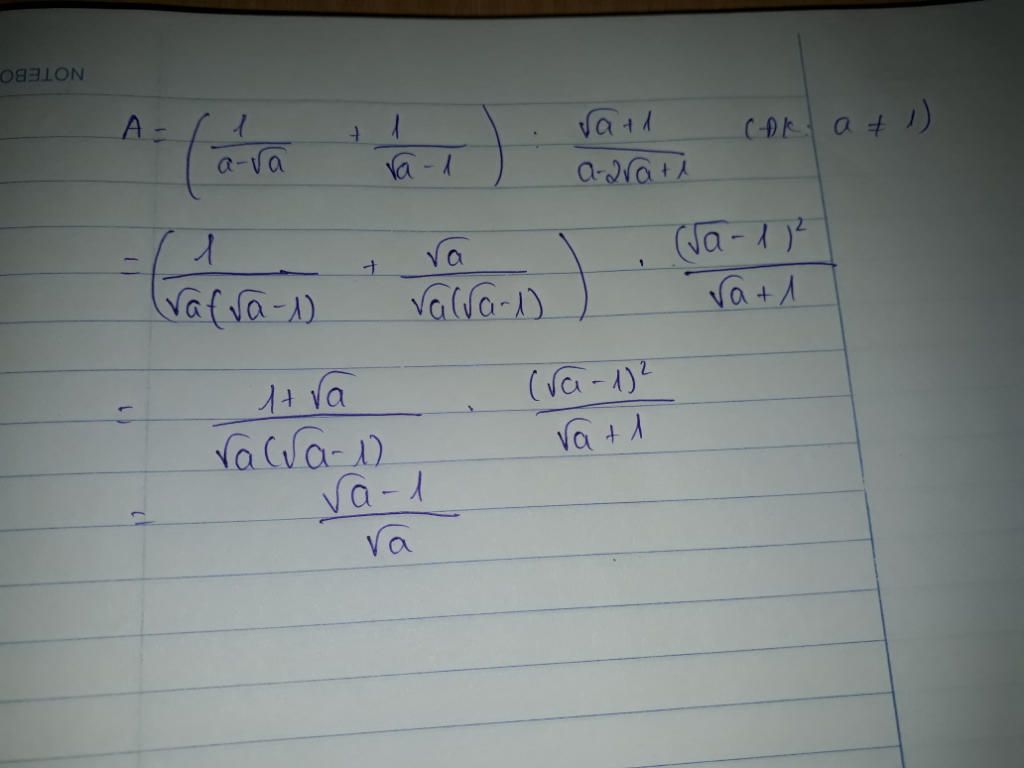 NOTEBO
A = ( 1/(a-√a) + 1/(√a-1) ) : (√a+1)/(a-2√a+1) (ĐK: a ≠ 1)
= ( 1/(√a(√a-1)) + √a/(√a(√a-1)) ) . (√a-1)²/(√a+1)
= (1+√a)/(√a(√a-1)) . (√a-1)²/(√a+1)
= (√a-1)/√a